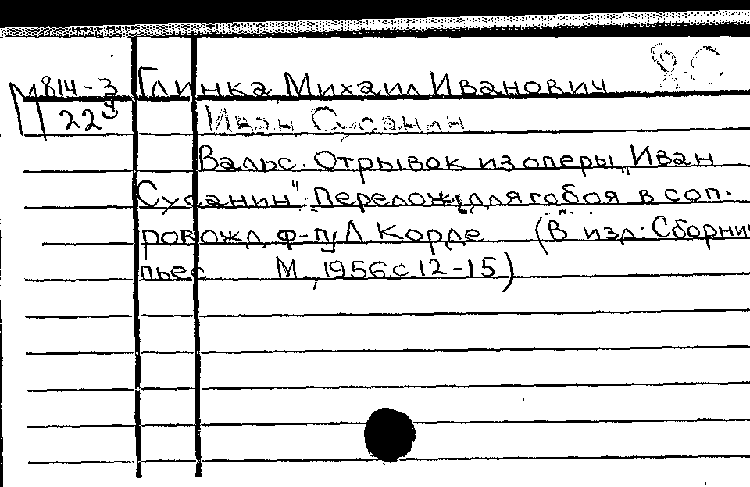 М814-3 Глинка, Михаил Иванович
223 Иван Сусанин
Вальс. Отрывок из оперы „Иван
Сусанин". Перелож. для гобоя в соп-
ровожд. ф-п. Л Корде (В изд. Сборни
пьес М., 1956 с 12-15)